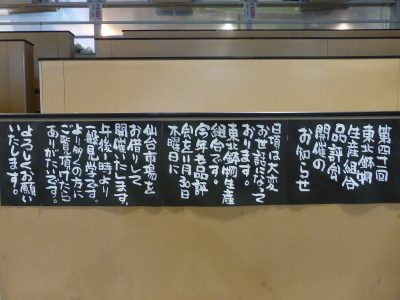 第四十一回
東北飾物
生産組合
品評会
開催の
お知らせ
日頃は大変
お世話になって
おります。
東北飾物生産
組合です。
今年も品評
会を11月30日
木曜日に
仙台市場を
お借りして
開催いたします。
午後一時より
一般見学です。
より多くの方に
ご覧頂けたら
ありがたいです。
よろしくお願い
いたします。